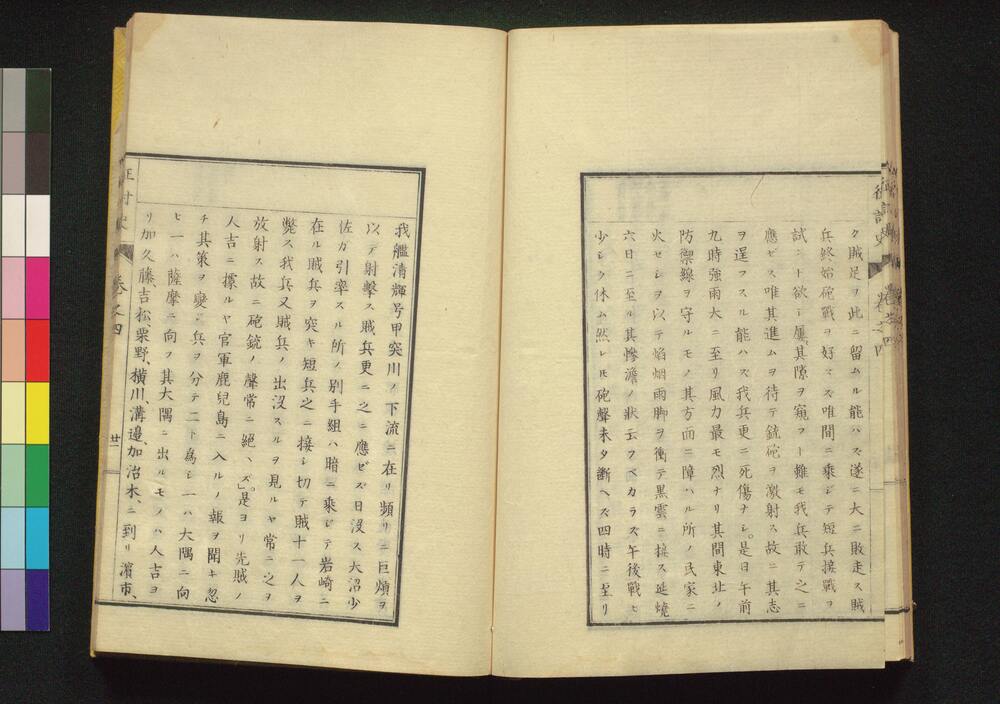 ク賊足ヲ此ニ留ムル能ハス遂ニ大ニ敗走ス賊
兵終始砲戰ヲ好マス唯間ニ乘シテ短兵接戰ヲ
試ント欲シ屢其隙ヲ窺フト雖モ我兵敢テ之ニ
應セス唯其進ムヲ待テ銃砲ヲ激射ス故ニ其志
ヲ逞フスル能ハス我兵更ニ死傷ナシ。是日午前
九時強雨大ニ至リ風力最モ烈ナリ其間東北ノ
防禦線ヲ守ルモノ其方面ニ障ハル所ノ民家ニ
火セシヲ以テ焰烟雨脚ヲ衝テ黒雲ニ接ス延燒
六日ニ至ル其慘澹ノ狀云フヘカラズ午後戰ヒ
少シク休ム然レ𪜈砲聲未タ斷ヘズ四時ニ至リ
我艦清輝号甲突川ノ下流ニ在リ頻リニ巨煩ヲ
以テ射擊ス賊兵更ニ之ニ應ビズ日沒ス大沼少
佐ガ引率スル所ノ別手組ハ暗ニ乘シテ岩崎ニ
在ル賊兵ヲ突キ短兵之ニ接シ切テ賊十一人ヲ
斃ス我兵又賊兵ノ出沒スルヲ見ルヤ常ニ之ヲ
放射ス故ニ砲銃ノ聲常ニ絕ヘズ。是ヨリ先賊ノ
人吉ニ據ルヤ官軍鹿兒島ニ入ルノ報ヲ聞キ忽
チ其策ヲ變シ兵ヲ分テ二ト爲シ一ハ大隅ニ向
ヒ一ハ薩摩ニ向フ其大隅ニ出ルモノハ人吉ヨ
リ加久藤、吉松、栗野、橫川、溝邉、加治木、ニ到リ濱市、
征討史
卷之四
廿一